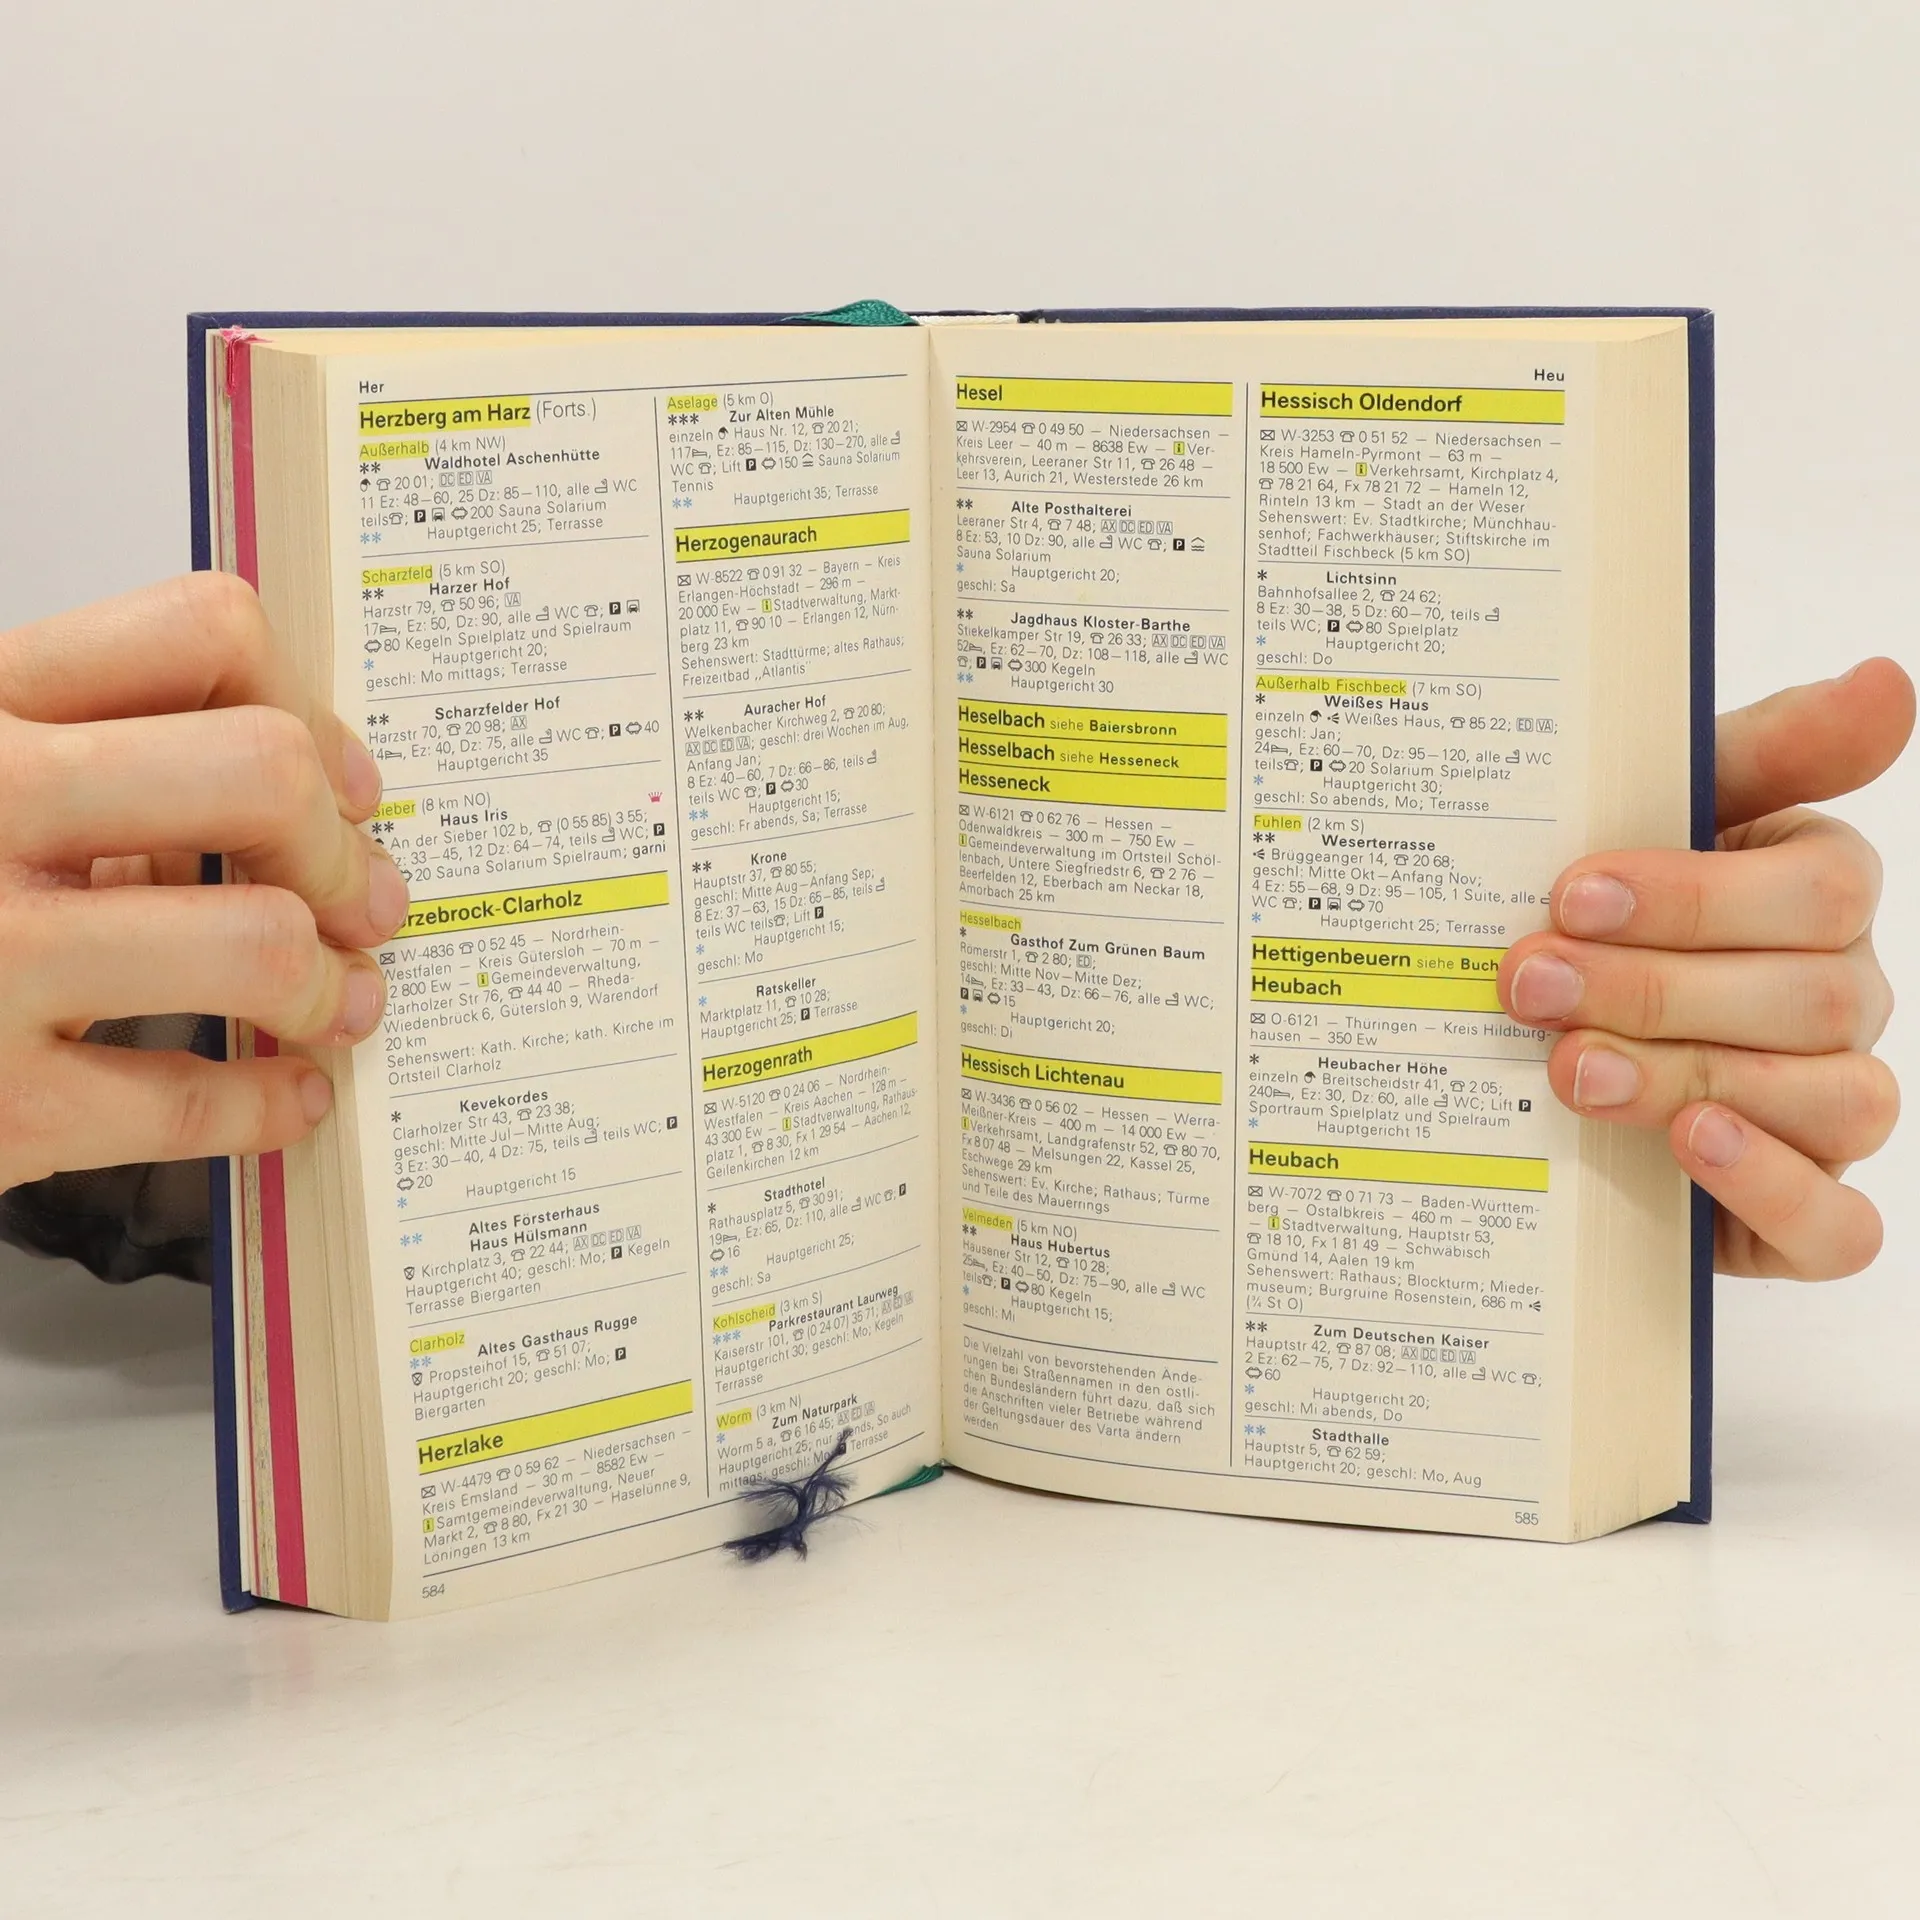 Her
Herzberg am Harz (Forts.)
Außerhalb (4 km NW)
** Waldhotel Aschenhütte
☎ 20 01; DC ED VA
11 Ez: 48–60, 25 Dz: 85–110, alle WC
teils☎; P 200 Sauna Solarium
** Hauptgericht 25; Terrasse
Scharzfeld (5 km SO)
** Harzer Hof
Harzstr 79, ☎ 50 96; VA
17, Ez: 50, Dz: 90, alle WC ☎; P
80 Kegeln Spielplatz und Spielraum
* Hauptgericht 20;
geschl: Mo mittags; Terrasse
** Scharzfelder Hof
Harzstr 70, ☎ 20 98; AX
14, Ez: 40, Dz: 75, alle WC ☎; P 40
Hauptgericht 35
Sieber (8 km NO)
** Haus Iris
An der Sieber 102 b, ☎ (0 55 85) 3 55;
Ez: 33–45, 12 Dz: 64–74, teils WC; P
20 Sauna Solarium Spielraum; garni
rzebrock-Clarholz
W-4836 ☎ 0 52 45 – Nordrhein-
Westfalen – Kreis Gütersloh – 70 m –
2 800 Ew – i Gemeindeverwaltung,
Clarholzer Str 76, ☎ 44 40 – Rheda-
Wiedenbrück 6, Gütersloh 9, Warendorf
20 km
Sehenswert: Kath. Kirche; kath. Kirche im
Ortsteil Clarholz
* Kevekordes
Clarholzer Str 43, ☎ 23 38;
geschl: Mitte Jul–Mitte Aug;
3 Ez: 30–40, 4 Dz: 75, teils teils WC; P
20
* Hauptgericht 15
** Altes Försterhaus
Haus Hülsmann
Kirchplatz 3, ☎ 22 44; AX DC ED VA
Hauptgericht 40; geschl: Mo; P Kegeln
Terrasse Biergarten
Clarholz
** Altes Gasthaus Rugge
Propsteihof 15, ☎ 51 07;
Hauptgericht 20; geschl: Mo; P
Biergarten
Herzlake
W-4479 ☎ 0 59 62 – Niedersachsen –
Kreis Emsland – 30 m – 8582 Ew –
i Samtgemeindeverwaltung, Neuer
Markt 2, ☎ 8 80, Fx 21 30 – Haselünne 9,
Löningen 13 km
584
Aselage (5 km O)
*** Zur Alten Mühle
einzeln Haus Nr. 12, ☎ 20 21;
117, Ez: 85–115, Dz: 130–270, alle
WC ☎; Lift P 150 Sauna Solarium
Tennis
** Hauptgericht 35; Terrasse
Herzogenaurach
W-8522 ☎ 0 91 32 – Bayern – Kreis
Erlangen-Höchstadt – 296 m –
20 000 Ew – i Stadtverwaltung, Markt-
platz 11, ☎ 90 10 – Erlangen 12, Nürn-
berg 23 km
Sehenswert: Stadttürme; altes Rathaus;
Freizeitbad „Atlantis“
** Auracher Hof
Welkenbacher Kirchweg 2, ☎ 20 80;
AX DC ED VA; geschl: drei Wochen im Aug,
Anfang Jan;
8 Ez: 40–60, 7 Dz: 66–86, teils
teils WC ☎; P 30
** Hauptgericht 15;
geschl: Fr abends, Sa; Terrasse
** Krone
Hauptstr 37, ☎ 80 55;
geschl: Mitte Aug–Anfang Sep;
8 Ez: 37–63, 15 Dz: 65–85, teils
teils WC teils☎; Lift P
* Hauptgericht 15;
geschl: Mo
* Ratskeller
Marktplatz 11, ☎ 10 28;
Hauptgericht 25; P Terrasse
Herzogenrath
W-5120 ☎ 0 24 06 – Nordrhein-
Westfalen – Kreis Aachen – 128 m –
43 300 Ew – i Stadtverwaltung, Rathaus-
platz 1, ☎ 8 30, Fx 1 29 54 – Aachen 12,
Geilenkirchen 12 km
* Stadthotel
Rathausplatz 5, ☎ 30 91;
19, Ez: 65, Dz: 110, alle WC ☎; P
16
** Hauptgericht 25;
geschl: Sa
Kohlscheid (3 km S)
*** Parkrestaurant Laurweg
Kaiserstr 101, ☎ (0 24 07) 35 71; AX ED VA
Hauptgericht 30; geschl: Mo; Kegeln
Terrasse
Worm (3 km N)
* Zum Naturpark
Worm 5 a, ☎ 6 16 45; AX ED VA
Hauptgericht 25; nur abends, So auch
mittags; geschl: Mo; P Terrasse
Heu
Hesel
W-2954 ☎ 0 49 50 – Niedersachsen –
Kreis Leer – 40 m – 8638 Ew – i Ver-
kehrsverein, Leeraner Str 11, ☎ 26 48 –
Leer 13, Aurich 21, Westerstede 26 km
** Alte Posthalterei
Leeraner Str 4, ☎ 7 48; AX DC ED VA
8 Ez: 53, 10 Dz: 90, alle WC ☎; P
Sauna Solarium
* Hauptgericht 20;
geschl: Sa
** Jagdhaus Kloster-Barthe
Stiekelkamper Str 19, ☎ 26 33; AX DC ED VA
52, Ez: 62–70, Dz: 108–118, alle WC
☎; P 300 Kegeln
** Hauptgericht 30
Heselbach siehe Baiersbronn
Hesselbach siehe Hesseneck
Hesseneck
W-6121 ☎ 0 62 76 – Hessen –
Odenwaldkreis – 300 m – 750 Ew –
i Gemeindeverwaltung im Ortsteil Schöl-
lenbach, Untere Siegfriedstr 6, ☎ 2 76 –
Beerfelden 12, Eberbach am Neckar 18,
Amorbach 25 km
Hesselbach
* Gasthof Zum Grünen Baum
Römerstr 1, ☎ 2 80; ED;
geschl: Mitte Nov–Mitte Dez;
14, Ez: 33–43, Dz: 66–76, alle WC;
P 15
* Hauptgericht 20;
geschl: Di
Hessisch Lichtenau
W-3436 ☎ 0 56 02 – Hessen – Werra-
Meißner-Kreis – 400 m – 14 000 Ew –
i Verkehrsamt, Landgrafenstr 52, ☎ 80 70,
Fx 8 07 48 – Melsungen 22, Kassel 25,
Eschwege 29 km
Sehenswert: Ev. Kirche; Rathaus; Türme
und Teile des Mauerrings
Velmeden (5 km NO)
** Haus Hubertus
Hausener Str 12, ☎ 10 28;
25, Ez: 40–50, Dz: 75–90, alle WC
teils☎; P 80 Kegeln
* Hauptgericht 15;
geschl: Mi
Die Vielzahl von bevorstehenden Ände-
rungen bei Straßennamen in den östli-
chen Bundesländern führt dazu, daß sich
die Anschriften vieler Betriebe während
der Geltungsdauer des Varta ändern
werden.
Hessisch Oldendorf
W-3253 ☎ 0 51 52 – Niedersachsen –
Kreis Hameln-Pyrmont – 63 m –
18 500 Ew – i Verkehrsamt, Kirchplatz 4,
☎ 78 21 64, Fx 78 21 72 – Hameln 12,
Rinteln 13 km – Stadt an der Weser
Sehenswert: Ev. Stadtkirche; Münchhau-
senhof; Fachwerkhäuser; Stiftskirche im
Stadtteil Fischbeck (5 km SO)
* Lichtsinn
Bahnhofsallee 2, ☎ 24 62;
8 Ez: 30–38, 5 Dz: 60–70, teils
teils WC; P 80 Spielplatz
* Hauptgericht 20;
geschl: Do
Außerhalb Fischbeck (7 km SO)
* Weißes Haus
einzeln Weißes Haus, ☎ 85 22; ED VA;
geschl: Jan;
24, Ez: 60–70, Dz: 95–120, alle WC
teils☎; P 20 Solarium Spielplatz
* Hauptgericht 30;
geschl: So abends, Mo; Terrasse
Fuhlen (2 km S)
** Weserterrasse
Brüggeanger 14, ☎ 20 68;
geschl: Mitte Okt–Anfang Nov;
4 Ez: 55–68, 9 Dz: 95–105, 1 Suite, alle
WC ☎; P 70
* Hauptgericht 25; Terrasse
Hettigenbeuern siehe Buch
Heubach
O-6121 – Thüringen – Kreis Hildburg-
hausen – 350 Ew
* Heubacher Höhe
einzeln Breitscheidstr 41, ☎ 2 05;
240, Ez: 30, Dz: 60, alle WC; Lift P
Sportraum Spielplatz und Spielraum
* Hauptgericht 15
Heubach
W-7072 ☎ 0 71 73 – Baden-Württem-
berg – Ostalbkreis – 460 m – 9000 Ew
– i Stadtverwaltung, Hauptstr 53,
☎ 18 10, Fx 1 81 49 – Schwäbisch
Gmünd 14, Aalen 19 km
Sehenswert: Rathaus; Blockturm; Mieder-
museum; Burgruine Rosenstein, 686 m
(¾ St O)
** Zum Deutschen Kaiser
Hauptstr 42, ☎ 87 08; AX DC ED VA
2 Ez: 62–75, 7 Dz: 92–110, alle WC ☎;
60
* Hauptgericht 20;
geschl: Mi abends, Do
** Stadthalle
Hauptstr 5, ☎ 62 59;
Hauptgericht 20; geschl: Mo, Aug
585